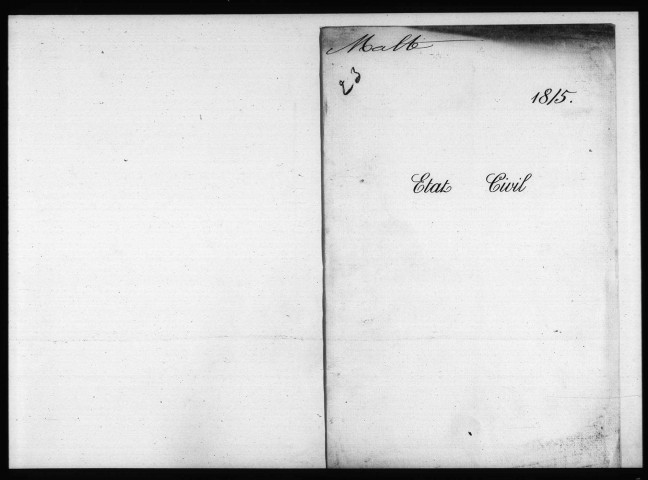 Malte
23
1815.
Etat Civil